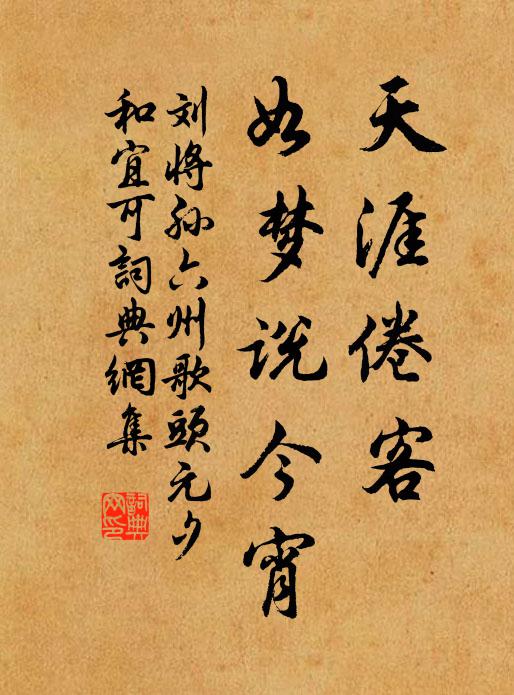 天涯倦客
如梦说今宵
刘将孙六州歌頭元夕
和宜可詞典網集
詞典
网印